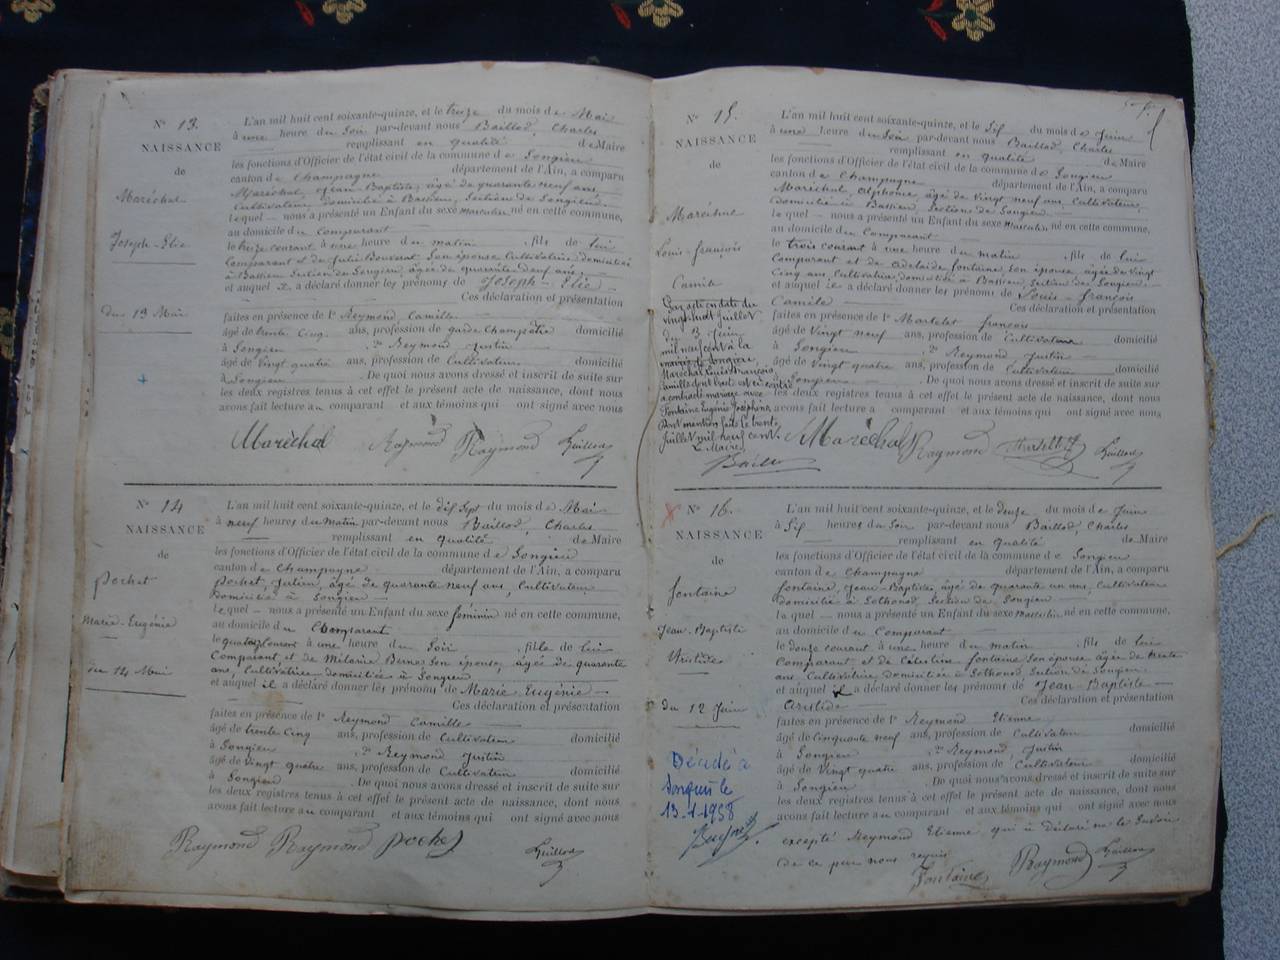 N° 13.
NAISSANCE
de
Maréchal
Joseph-Elie
du 13 Mai
L'an mil huit cent soixante-quinze, et le treize du mois de Mai
à une heure du Soir par-devant nous Baillod, Charles
remplissant en qualité de Maire
les fonctions d'Officier de l'état civil de la commune de Songieu
canton de Champagne département de l'Ain, a comparu
Maréchal, Jean-Baptiste, âgé de quarante neuf ans
Cultivateur domicilié à Bassieu, Section de Songieu
lequel nous a présenté un Enfant du sexe masculin né en cette commune,
au domicile du Comparant
le treize courant à une heure du matin, fils de lui
Comparant et de Julie son épouse Cultivatrice domiciliée
à Bassieu Section de Songieu, âgée de quarante deux ans,
et auquel il a déclaré donner les prénoms de Joseph-Elie
Ces déclaration et présentation
faites en présence de 1° Reymond Camille
âgé de trente cinq ans, profession de garde Champêtre domicilié
à Songieu 2° Reymond Justin
âgé de vingt quatre ans, profession de Cultivateur domicilié
à Songieu. De quoi nous avons dressé et inscrit de suite sur
les deux registres tenus à cet effet le présent acte de naissance, dont nous
avons fait lecture au comparant et aux témoins qui ont signé avec nous
Maréchal Raymond Raymond
N° 14
NAISSANCE
de
Pochet
Marie-Eugénie
du 14 Mai
L'an mil huit cent soixante-quinze, et le dix sept du mois de Mai
à neuf heures du matin par-devant nous Baillod, Charles
remplissant en qualité de Maire
les fonctions d'Officier de l'état civil de la commune de Songieu
canton de Champagne département de l'Ain, a comparu
Pochet Julien, âgé de quarante neuf ans, Cultivateur
Domicilié à Songieu
lequel nous a présenté un Enfant du sexe féminin né en cette commune,
au domicile du Comparant
le quatorze courant à une heure du Soir, fille de lui
Comparant et de Mélanie son épouse, âgée de quarante
ans, Cultivatrice domiciliée à Songieu
et auquel il a déclaré donner les prénoms de Marie Eugénie
Ces déclaration et présentation
faites en présence de 1° Reymond Camille
âgé de trente cinq ans, profession de Cultivateur domicilié
à Songieu 2° Reymond Justin
âgé de vingt quatre ans, profession de Cultivateur domicilié
à Songieu. De quoi nous avons dressé et inscrit de suite sur
les deux registres tenus à cet effet le présent acte de naissance, dont nous
avons fait lecture au comparant et aux témoins qui ont signé avec nous
Raymond Raymond Pochet
N° 15.
NAISSANCE
de
Maréchal
Louis-françois
Camile
Par acte en date du
vingt-huit juillet
du 3 Juin
mil neuf cent à la
mairie de Songieu,
Maréchal Louis François
Camille dont l'acte est ci contre
a contracté mariage avec
Fontaine Eugénie Joséphine
Dont mention faite le trente
juillet mil neuf cent.
Le Maire,
L'an mil huit cent soixante-quinze, et le Six du mois de Juin
à une heure du Soir par-devant nous Baillod, Charles
remplissant en qualité de Maire
les fonctions d'Officier de l'état civil de la commune de Songieu
canton de Champagne département de l'Ain, a comparu
Maréchal, Alphonse, âgé de vingt neuf ans, Cultivateur,
domicilié à Bassieu, Section de Songieu
lequel nous a présenté un Enfant du sexe masculin né en cette commune,
au domicile du Comparant
le trois courant à une heure du matin, fils de lui
Comparant et de Adelaïde fontaine, son épouse âgée de vingt
Cinq ans, Cultivatrice, domiciliée à Bassieu, Section de Songieu
et auquel il a déclaré donner les prénoms de Louis-françois
Camile Ces déclaration et présentation
faites en présence de 1° Martelet françois
âgé de vingt neuf ans, profession de Cultivateur domicilié
à Songieu 2° Reymond, Justin
âgé de vingt quatre ans, profession de Cultivateur domicilié
à Songieu. De quoi nous avons dressé et inscrit de suite sur
les deux registres tenus à cet effet le présent acte de naissance, dont nous
avons fait lecture à comparant et aux témoins qui ont signé avec nous
Maréchal Raymond
N° 16.
NAISSANCE
de
fontaine
Jean-Baptiste
Aristide
du 12 Juin
Décédé à
le
13-1-1958
L'an mil huit cent soixante-quinze, et le douze du mois de Juin
à Six heures du Soir par-devant nous Baillod, Charles
remplissant en qualité de Maire
les fonctions d'Officier de l'état civil de la commune de Songieu
canton de Champagne département de l'Ain, a comparu
fontaine, Jean-Baptiste, âgé de quarante un ans, Cultivateur
domicilié à Sothonod, Section de Songieu
lequel nous a présenté un Enfant du sexe masculin né en cette commune,
au domicile du Comparant
le douze courant à une heure du matin, fils de lui
Comparant et de Célestine fontaine son épouse âgée de trente
ans, Cultivatrice, domiciliée à Sothonod Section de Songieu
et auquel il a déclaré donner les prénoms de Jean-Baptiste
Aristide Ces déclaration et présentation
faites en présence de 1° Reymond Etienne
âgé de cinquante neuf ans, profession de Cultivateur domicilié
à Songieu 2° Reymond, Justin
âgé de vingt quatre ans, profession de Cultivateur domicilié
à Songieu. De quoi nous avons dressé et inscrit de suite sur
les deux registres tenus à cet effet le présent acte de naissance, dont nous
avons fait lecture au comparant et aux témoins qui ont signé avec nous
excepté Reymond Etienne qui a Déclaré ne le Savoir
de ce par nous requis
Fontaine Raymond